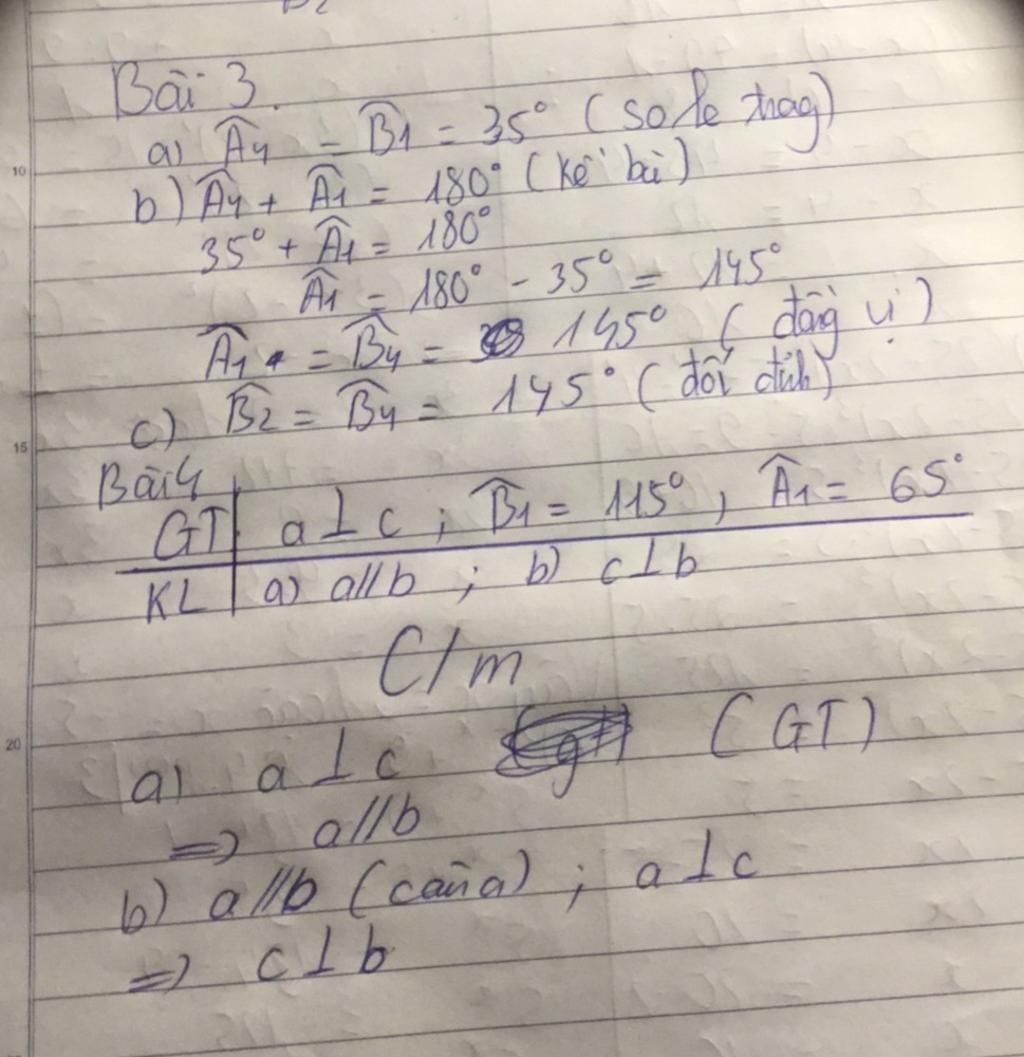 Bài 3.
a) Â4 = B̂1 = 35° (so le trog)
b) Â4 + Â1 = 180° (kề bù)
35° + Â1 = 180°
Â1 = 180° - 35° = 145°
Â1 = B̂4 = 145° (đồng vị)
c) B̂2 = B̂4 = 145° (đối đỉnh)
Bài 4
GT | a ⊥ c ; B̂1 = 115° , Â1 = 65°
KL | a) a//b ; b) c ⊥ b
C/m
a) a ⊥ c (GT)
=> a//b
b) a//b (câu a) ; a ⊥ c
=> c ⊥ b
10
15
20